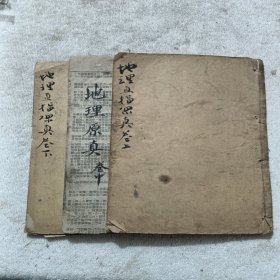 地理直指原真卷下
地理原真
卷中
地理直指原真卷上